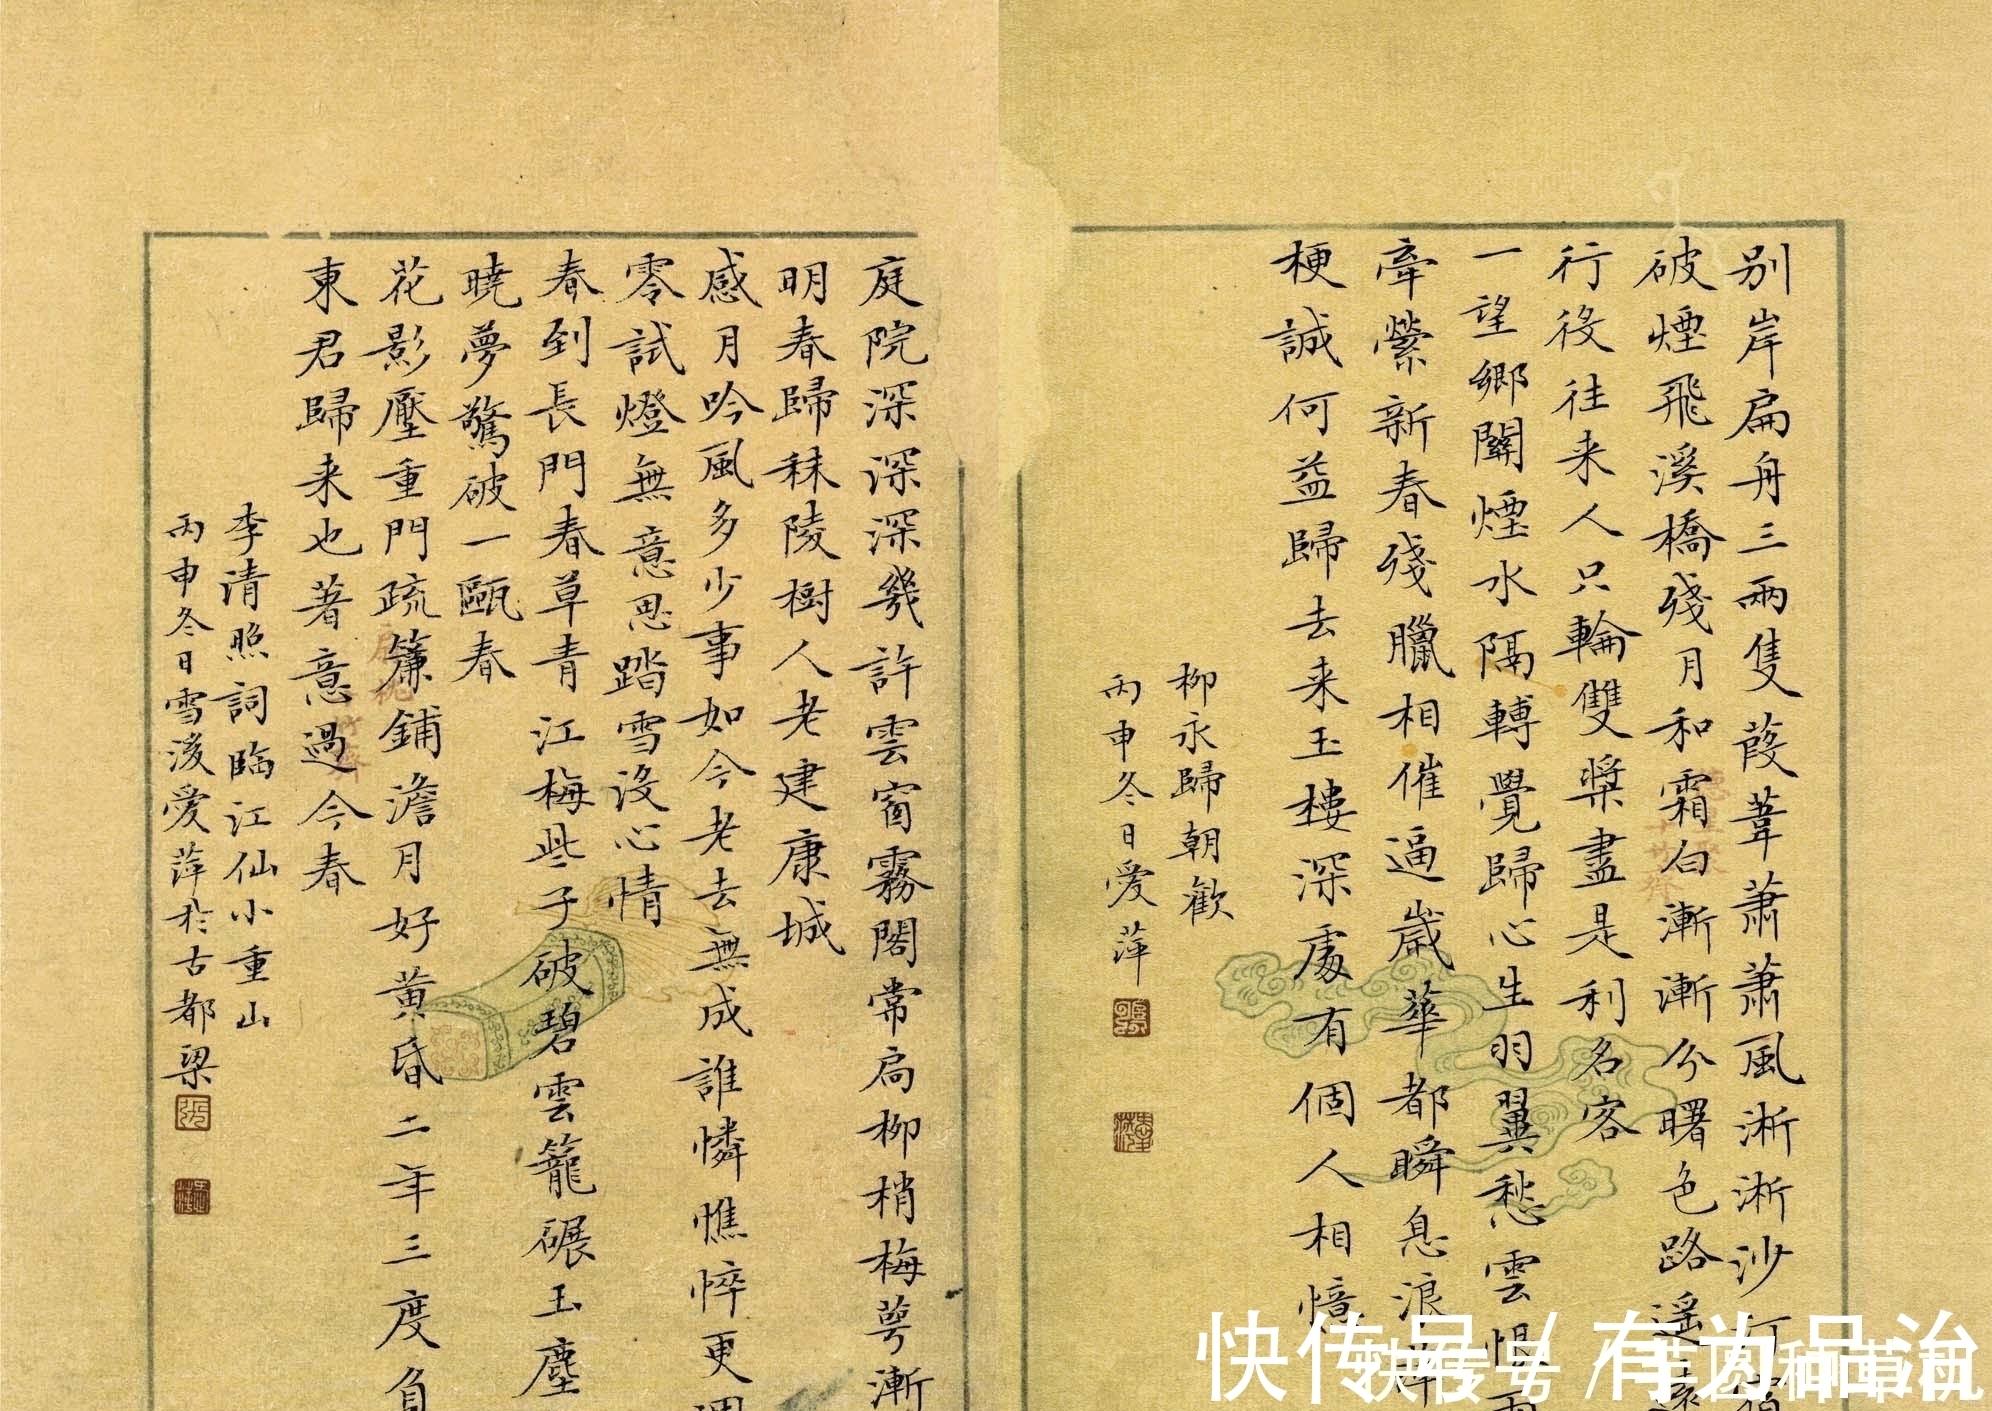 別岸扁舟三兩隻葭葦蕭蕭風淅淅沙汀
破煙飛溪橋殘月和霜白漸漸分曙色路遙遠
行役往来人只輪雙槳盡是利名客
一望鄉關煙水隔轉覺歸心生羽翼愁雲恨雨
牽縈新春殘臘相催逼歲華都瞬息浪萍
梗誠何益歸去来玉樓深處有個人相憶
柳永歸朝歡
丙申冬日愛萍
庭院深深深幾許雲窗霧閣常扃柳梢梅萼漸
明春歸秣陵樹人老建康城
感月吟風多少事如今老去無成誰憐憔悴更凋
零試燈無意思踏雪沒心情
春到長門春草青江梅些子破碧雲籠碾玉塵
曉夢驚破一甌春
花影壓重門疏簾鋪澹月好黃昏二年三度負
東君歸来也著意過今春
李清照詞臨江仙小重山
丙申冬日雪後愛萍於古都梁
快传号/有为品治